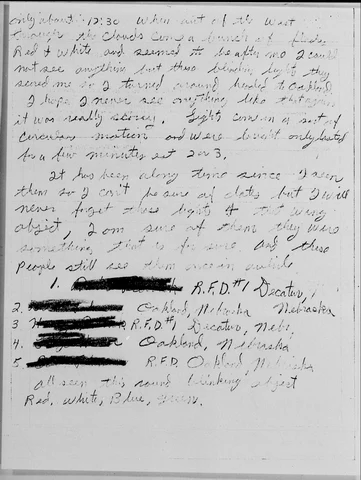 only about 12:30 when out of the West
through the clouds come a bunch of
Red & White and seemed to be after me I could
not see anything but these blinking lights they
scared me so I turned around headed to Oakland
I hope I never see anything like that again
it was really scarey. Lights come in a sort of
circular motion and were bright only lasted
for a few minutes at 2 or 3.
It has been along time since I seen
them so I can't be sure of dates but I will
never forget those lights & that
object, I am sure of them they were
something that is for sure. and these
People still see them once in awhile.
1. R.F.D. #1 Decatur,
2. Oakland, Nebraska Nebraska
3. R.F.D. #1 Decatur, Nebr.
4. Oakland, Nebraska
5. R.F.D. Oakland Nebraska
all seen this round blinking object
Red, White, Blue, Green.